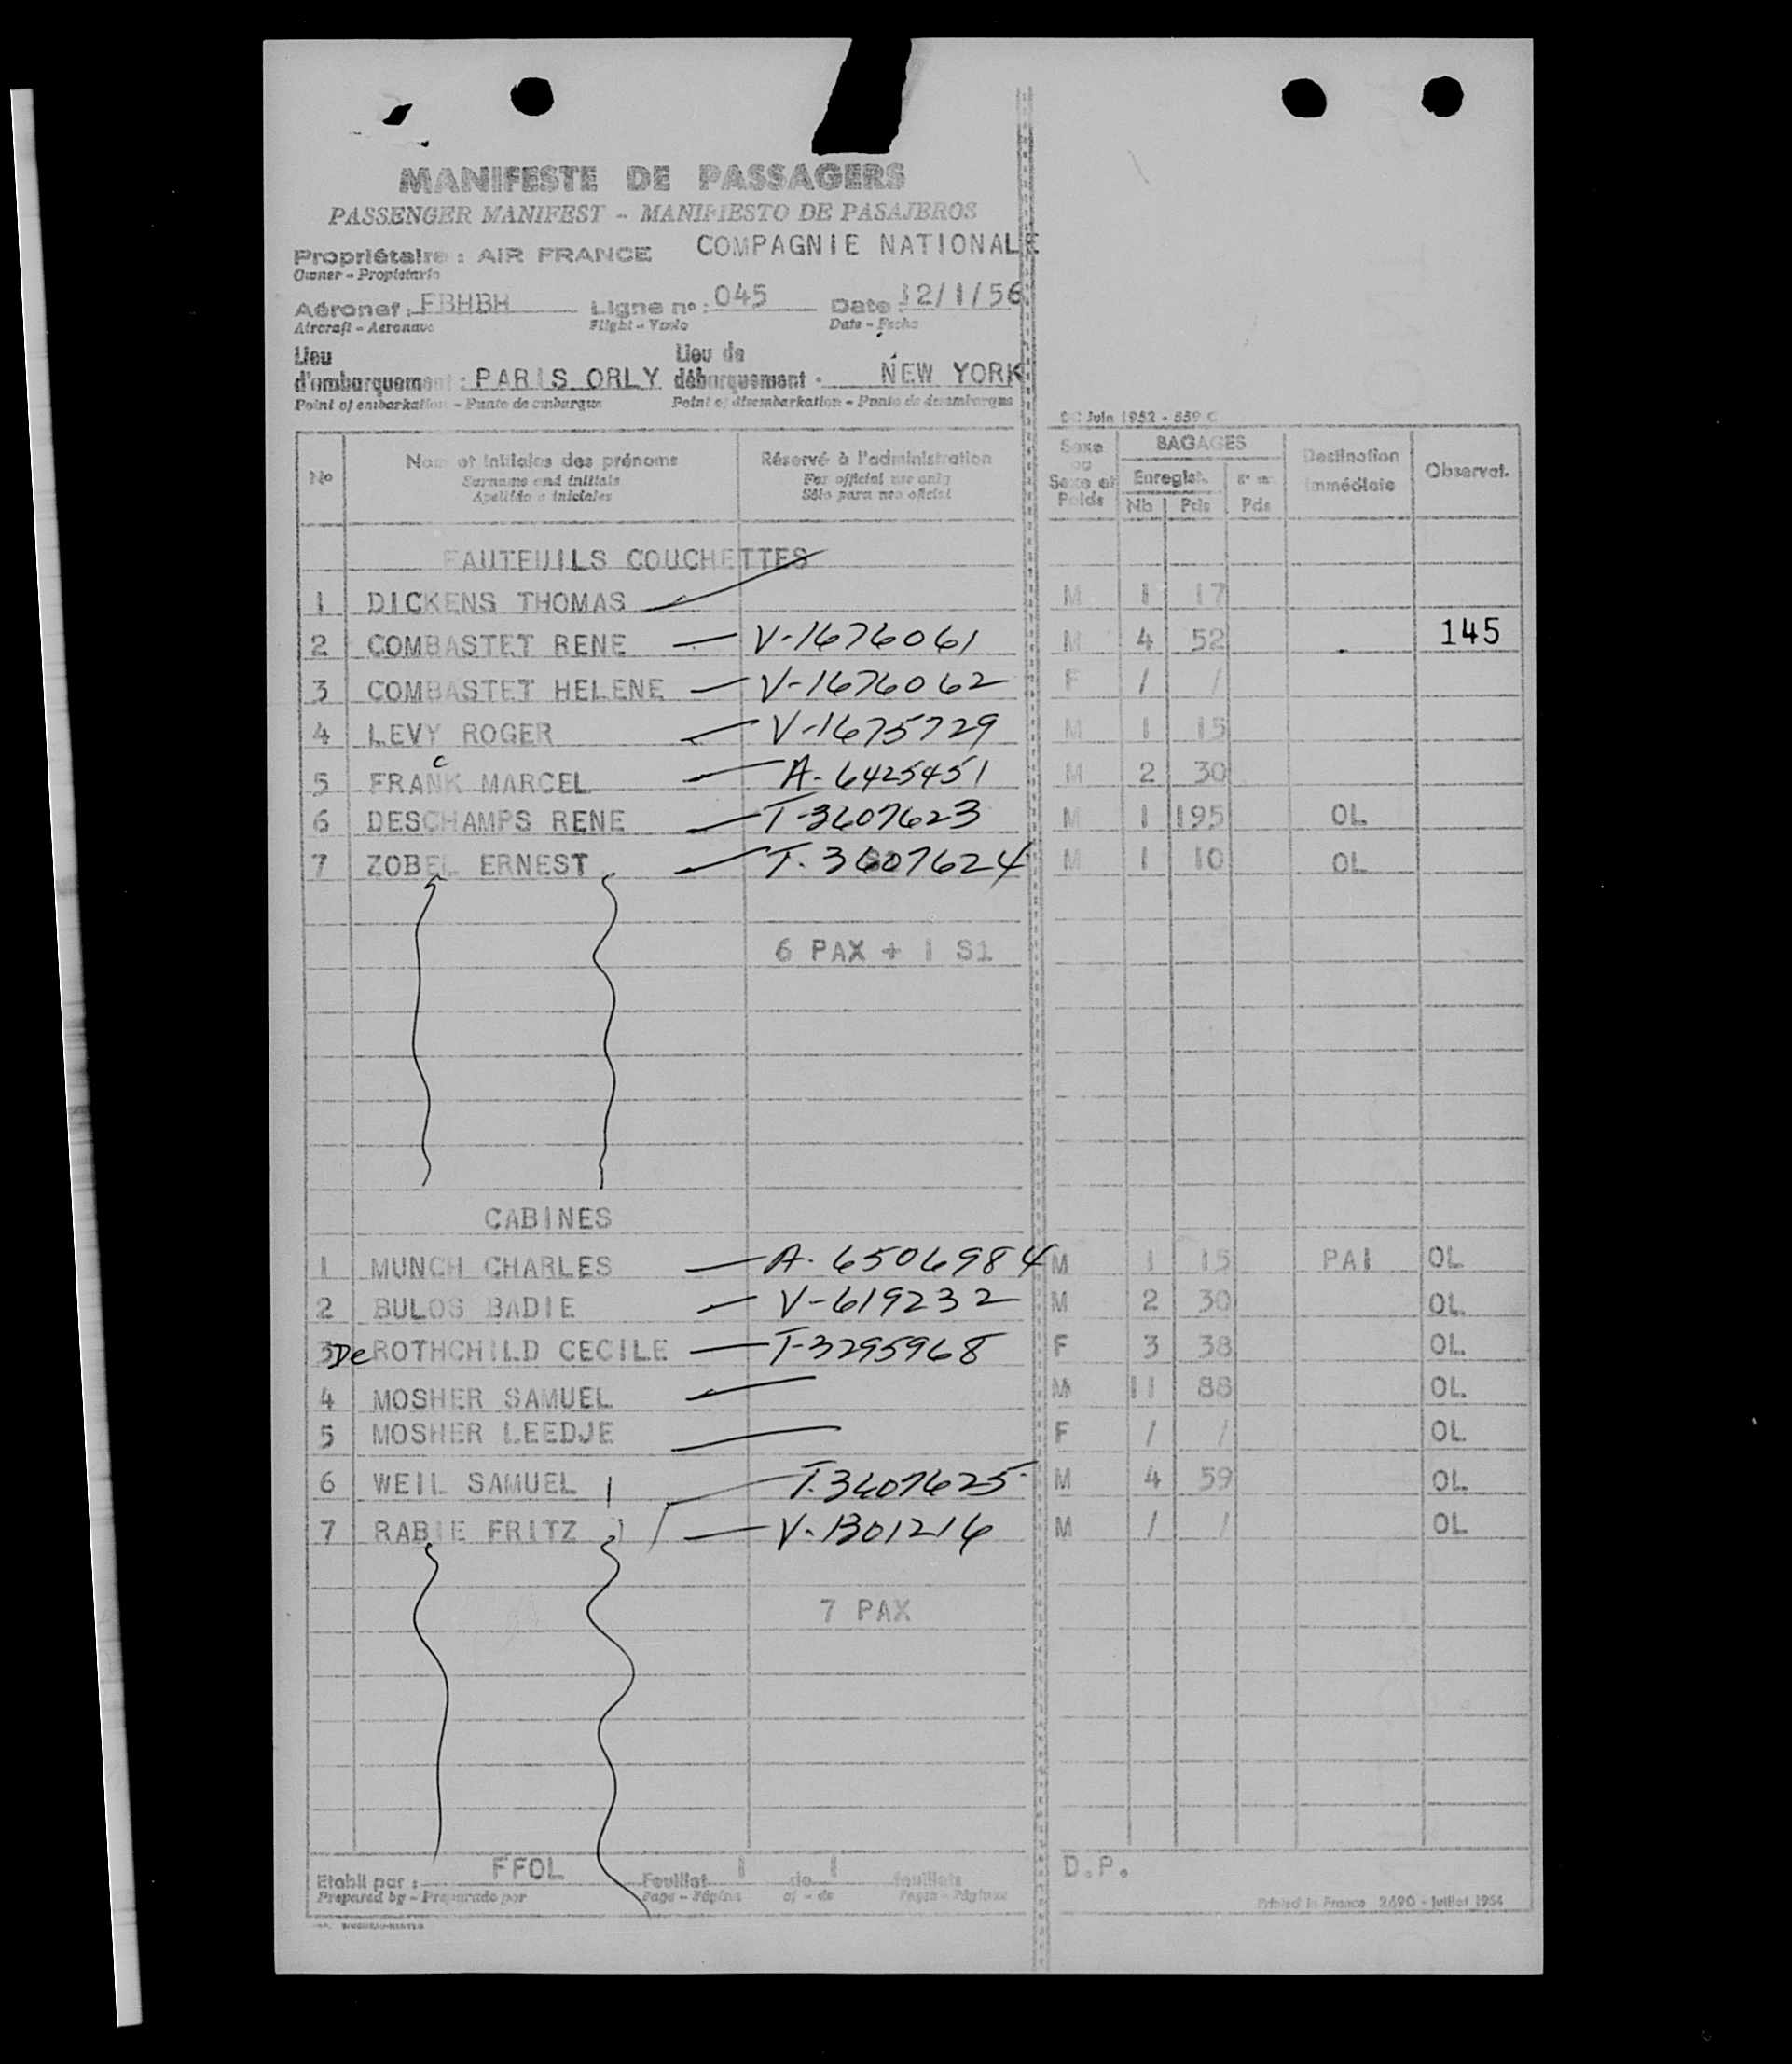 MANIFESTE DE PASSAGERS
PASSENGER MANIFEST - MANIFIESTO DE PASAJEROS
Propriétaire : AIR FRANCE COMPAGNIE NATIONALE
Owner - Propietario
Aéronef : FBHBH Ligne no : 045 Date : 12/1/56
Aircraft - Aeronave Flight - Vuelo Date - Fecha
Lieu d'embarquement : PARIS ORLY Lieu de débarquement . NEW YORK
Point of embarkation - Punto de embarque Point of disembarkation - Punto de desembarque
Juin 1952 - 559 C
No Nom et initiales des prénoms Réservé à l'administration Sexe ou Sexe et Poids BAGAGES Destination immédiate Observat.
Surname and initials For official use only Enregist.
Apellido e iniciales Sólo para uso oficial Nb Pds Pds
FAUTEUILS COUCHETTES
1 DICKENS THOMAS M 1 17
2 COMBASTET RENE V-1676061 M 4 52 145
3 COMBASTET HELENE V-1676062 F / /
4 LEVY ROGER V-1675729 M 1 15
c
5 FRANK MARCEL A-6425451 M 2 30
6 DESCHAMPS RENE T-3607623 M 1 195 OL
7 ZOBEL ERNEST T-3607624 M 1 10 OL
6 PAX + 1 S1
CABINES
1 MUNCH CHARLES A-6506984 M 1 15 PAI OL
2 BULOS BADIE V-619232 M 2 30 OL
3 De ROTHCHILD CECILE T-3295968 F 3 38 OL
4 MOSHER SAMUEL M 11 88 OL
5 MOSHER LEEDJE F / / OL
6 WEIL SAMUEL T-3607625 M 4 59 OL
7 RABIE FRITZ V-1301216 M / / OL
7 PAX
Etabli par : FFOL Feuillet 1 de 1 feuillets D.P.
Prepared by - Preparado por Page - Página of - de Pages - Páginas
Printed in France 2690 - Juillet 1954